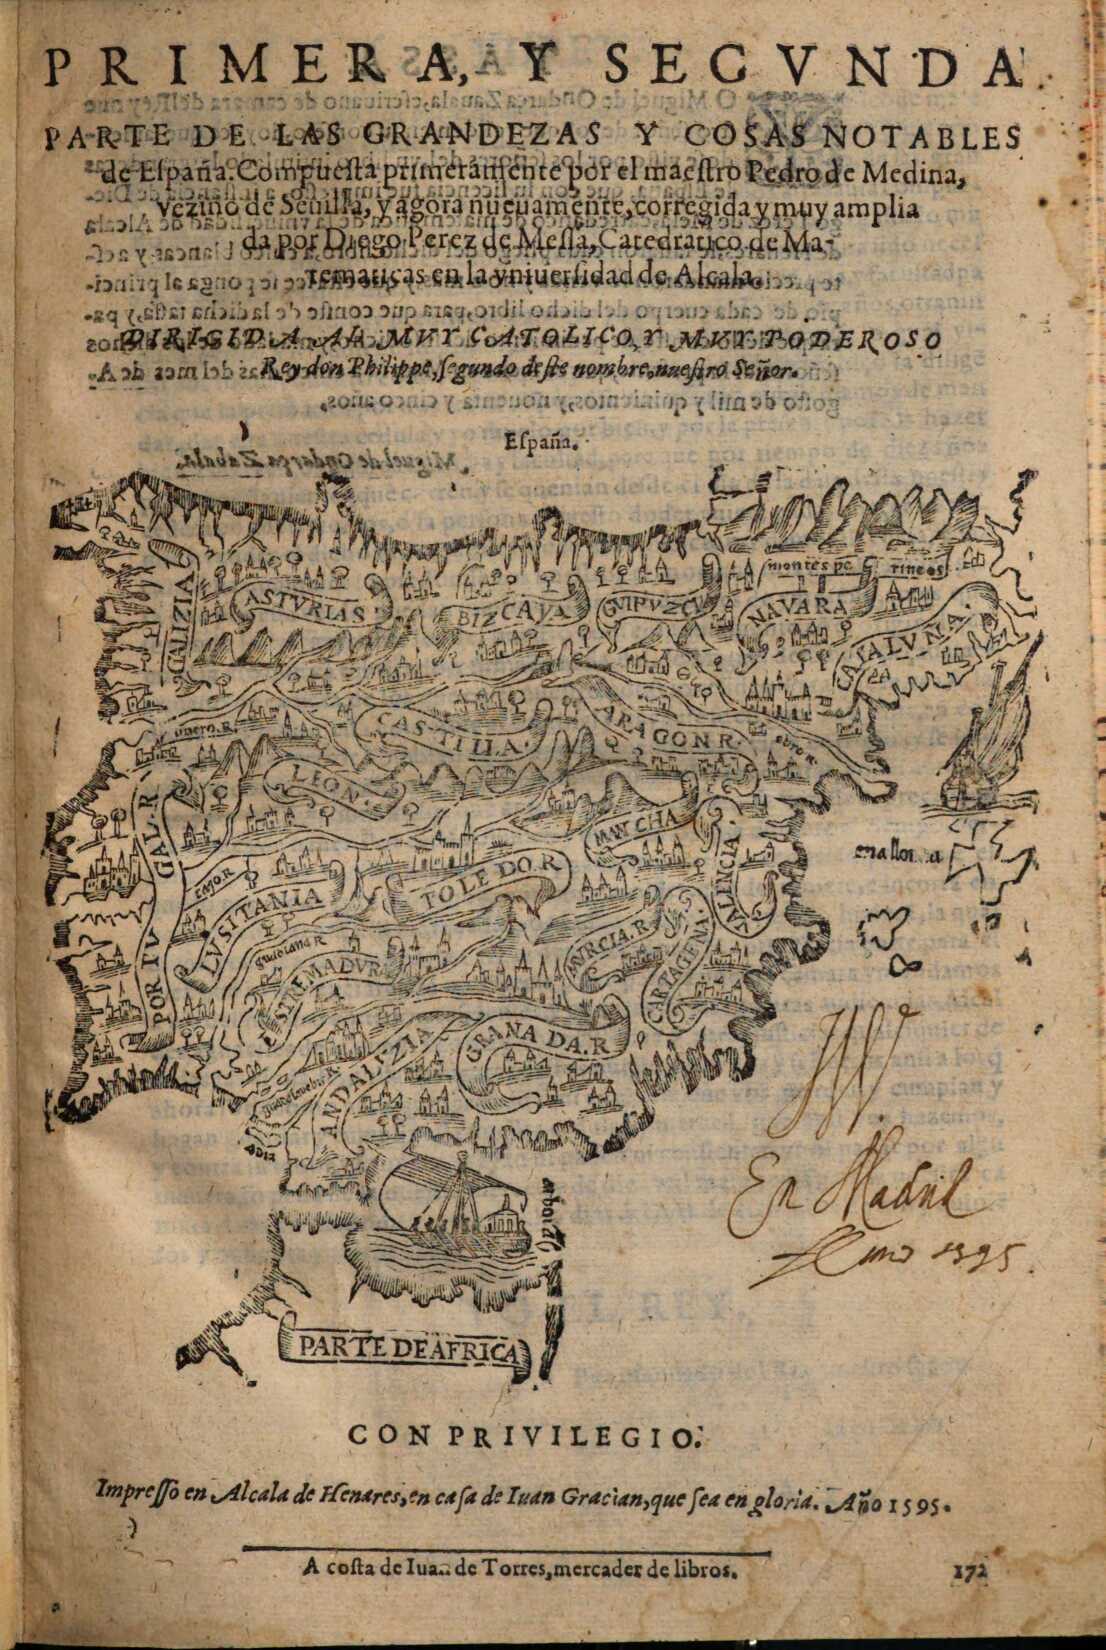 PRIMERA, Y SEGVNDA
PARTE DE LAS GRANDEZAS Y COSAS NOTABLES
de Eſpaña. Compueſta primeramente por el maeſtro Pedro de Medina,
vezino de Seuilla, y agora nueuamente, corregida y muy amplia
da por Diego Perez de Meſſa, Catedratico de Ma-
tematicas en la vniuerſidad de Alcala.
DIRIGIDA AL MVY CATOLICO, Y MVY PODEROSO
Rey don Philippe, ſegundo deſte nombre, nueſtro Señor.
Eſpaña.
montes pe rineos
GALIZIA
ASTVRIAS
BIZCAYA
GVIPVZCV
NAVARA
CATALVNIA
duero. R
CASTILLA.
ARAGON R.
ebro
LEON.
PORTVGAL. R
MANCHA
VALENCIA.
mallorca
TOLEDO. R
LVSITANIA
guadiana R
ESTREMADVR
MVRCIA. R
CARTAGENA
GRANADA. R
ANDALVZIA
PARTE DE AFRICA
En Madrid
Año 1595.
CON PRIVILEGIO.
Impreſſo en Alcala de Henares, en caſa de Iuan Gracian, que ſea en gloria. Año 1595.
A coſta de Iuan de Torres, mercader de libros.
172